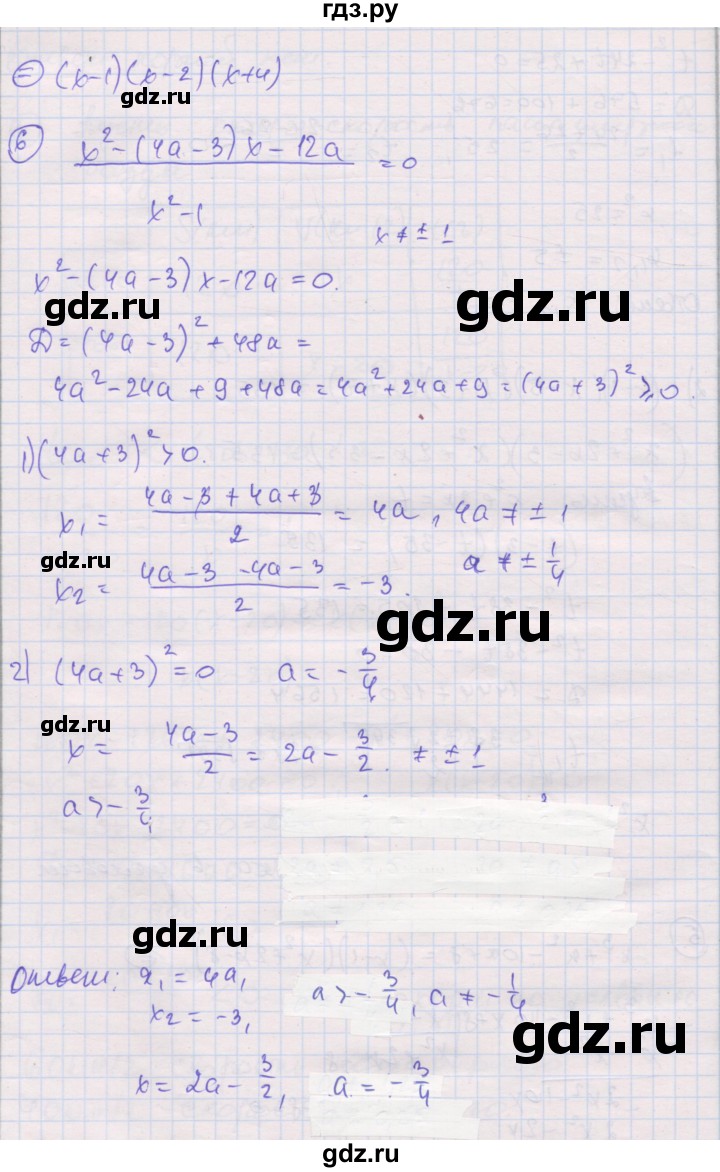 гдз.ру
⊜ (x-1)(x-2)(x+4)
gdz.ru
⑥ x²-(4a-3)x-12a / x²-1 = 0
gdz.ru
x ≠ ± 1
x²-(4a-3)x-12a=0.
gdz.ru
gdz.ru
Д=(4a-3)²+48a=
4a²-24a+9+48a=4a²+24a+9=(4a+3)²≥0.
1)(4a+3)²>0.
x₁= (4a-3+4a+3)/2 = 4a, 4a≠±1
gdz.ru
x₂= (4a-3-4a-3)/2 = -3. a≠±1/4
gdz.ru
2) (4a+3)²=0 a=-3/4
gdz.ru
x= (4a-3)/2 = 2a-3/2. ≠±1
a>-3/4
gdz.ru
Ответ: x₁=4a, a>-3/4, a≠-1/4
x₂=-3,
gdz.ru
x=2a-3/2, a=-3/4
gdz.ru
gdz.ru